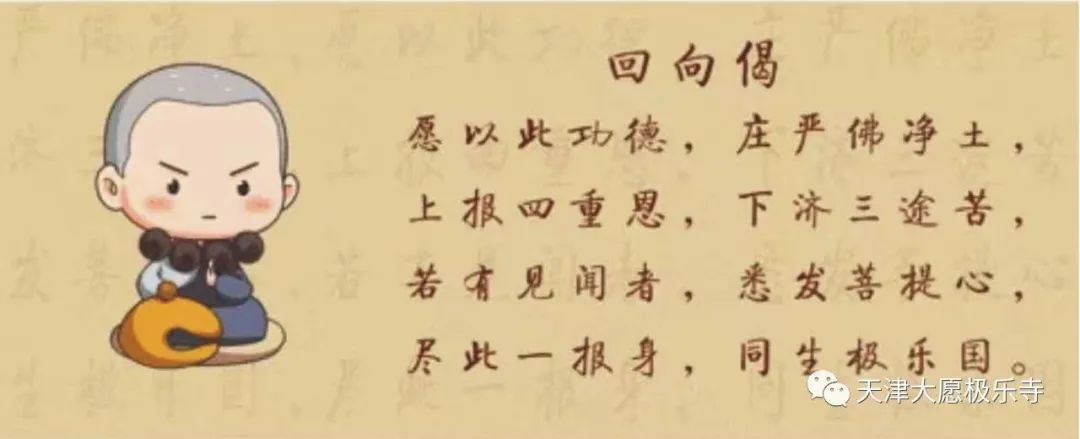 回向偈
愿以此功德，庄严佛净土，
上报四重恩，下济三途苦，
若有见闻者，悉发菩提心，
尽此一报身，同生极乐国。
天津大愿极乐寺